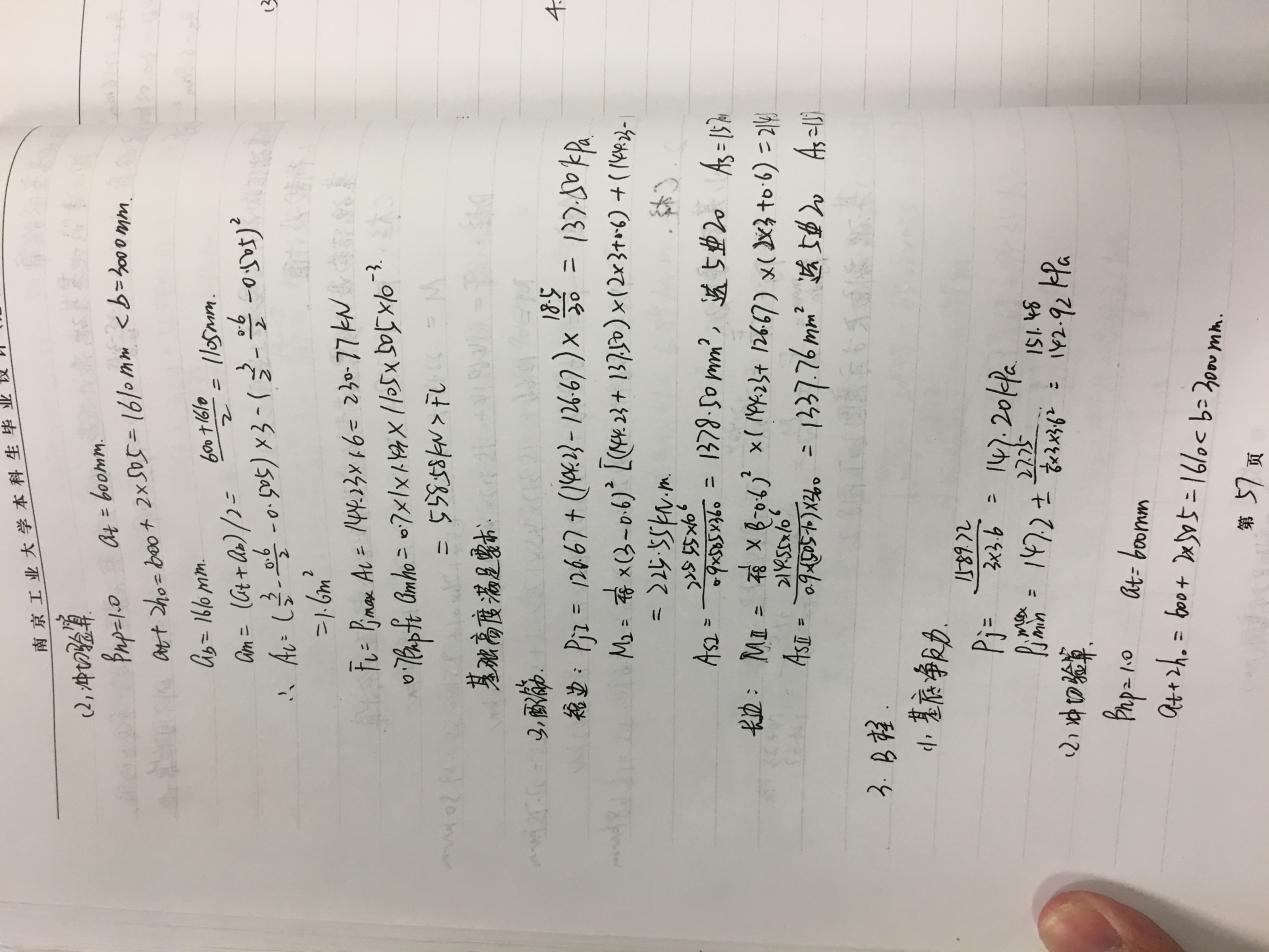 南京工业大学本科生毕业设计
(2)、冲切验算
βhp=1.0 at=600mm.
at+2h₀=600+2×505=1610mm<b=3000mm.
ab=1610mm.
am=(at+ab)/2=\frac{600+1610}{2}=1105mm.
∴ Al=(\frac{3}{2}-\frac{0.6}{2}-0.505)×3-(\frac{3}{2}-\frac{0.6}{2}-0.505)²
=1.6m²
Fl=Pjmax Al=144.23×1.6=230.77kN
0.7βhpft amh₀=0.7×1×1.43×1105×505×10⁻³.
=558.58kN>Fl
基础高度满足要求.
3、配筋.
短边: Pj2=126.67+(144.23-126.67)×\frac{18.5}{30}=137.50kPa.
M₂=\frac{1}{48}×(3-0.6)²[(144.23+137.50)×(2×3+0.6)+(144.23-
=225.55kN·m.
As2=\frac{225.55×10⁶}{0.9×505×360}=1378.50mm², 选5Φ20 As=157
长边: MⅡ=\frac{1}{48}×(3-0.6)²×(144.23+126.67)×(2×3+0.6)=214
AsⅡ=\frac{214.55×10⁶}{0.9×(505-10)×360}=1337.76mm² 选5Φ20 As=15
3. B柱.
(1)、基底净反力.
Pj=\frac{1589.72}{3×3.6}=147.20kPa.
Pj max min=147.2±\frac{27.75}{\frac{1}{6}×3×3.6²}=151.48 142.92kPa
(2)、冲切验算.
βhp=1.0 at=600mm
at+2h₀=600+2×505=1610<b=3000mm.
第57页
(3
4.